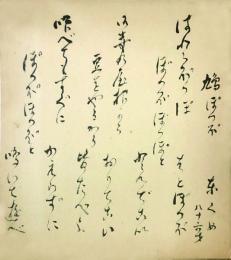 鳩ぽっぽ
東くめ
はとぽっぽ
はとぽっぽ
ぽっぽぽっぽと
とんでこい
お寺の屋根から
おりてこい
豆をやるから
皆たべよ
喰べてもすぐに
かえらずに
ぽっぽぽっぽと
鳴いて遊べ